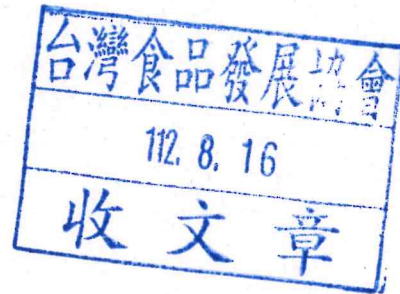 台灣食品發展協會
112. 8. 16
收文章